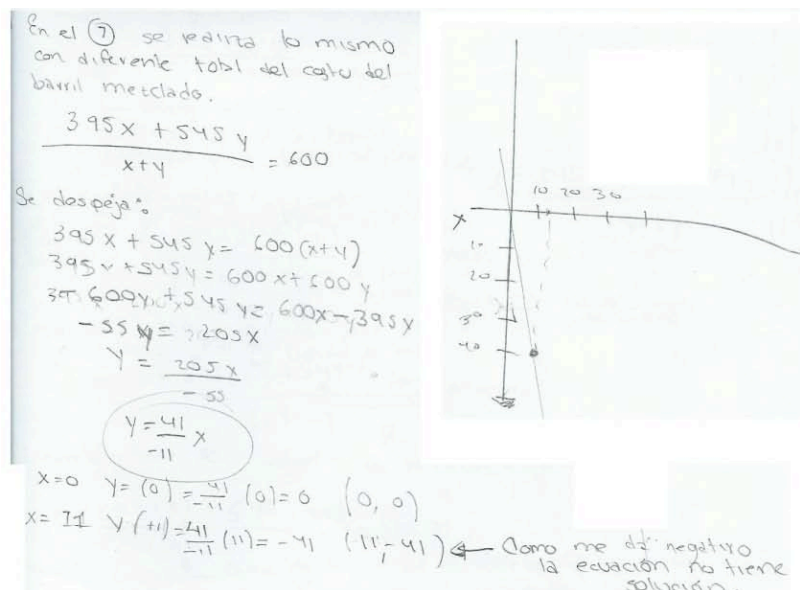 En el ⑦ se realiza lo mismo
con diferente total del costo del
barril mezclado.
395x + 545y
x+y
= 600
Se despeja:
395x + 545y = 600(x+y)
395x + 545y = 600x + 600y
600y + 545y = 600x - 395x
-55y = 205x
y = 205x
-55
y = 41 x
-11
x=0 y=(0)= 41/-11 (0)=0 (0,0)
x=11 y(11)= 41/-11 (11)= -41 (11,-41) ← Como me da negativo
la ecuación no tiene
solución.
10 20 30
x
10
20
30
40